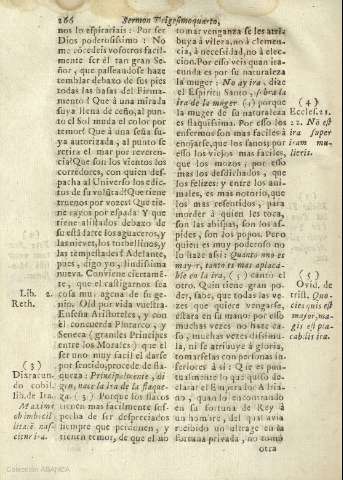 266 Sermon Trigesimoquarto,
nos lo espirariais: Por ser
Dios poderosissimo: No
me cõcedeis vosotros facil-
mente ser èl tan gran Se-
ñor, que passeandose haze
temblar debaxo de sus pies
todas las basas del Firma-
mento? Que à una mirada
suya llena de ceño, al pun-
to el Sol muda el color por
temor? Que à una seña su-
ya autorizada, al punto se
retira el mar por reveren-
cia? Que son los vientos los
corredores, con quien des-
pacha al Universo los edic-
tos de su volũtad? Que tiene
truenos por vozes? Que tie-
ne rayos por espada? Y que
tiene alistados debaxo de
su estãdarte los aguaceros, y
las nieves, los torbellinos, y
las tempestades? Adelante,
pues, digo yo, lindissima
nueva. Conviene ciertamē-
te, que el castigarnos sea
cosa muy agena de su ge-
nio. Oìd por vida vuestra
Enseña Aristoteles, y con
èl concuerda Plutarco, y
Seneca (grandes Principes
entre los Morales) que el
ser uno muy facil de darse
por sentido, procede de fla-
queza: Principalmente, di-
gen, nace la ira de la flaque-
za. (3) Porque los flacos
tienen mas facilmente sos-
pecha de ser despreciados
siempre que pierden, y
tienen temor, de que el no
Lib. 2.
Reth.
(3)
Dixaracun
do cobil.
lib. de Ira.
Maxime
ob imbecil
litatē nas-
citur ira.
tomar venganza se les atri-
buya à vileza, no à clemen-
cia, à necesidad, no à elec-
cion. Por esso veis quan ira-
cunda es por su naturaleza
la muger: No ay ira, dize
el Espiritu Santo, sobre la
ira de la muger (4) porque
la muger de su naturaleza
es flaquissima. Por esso los
enfermos son mas faciles à
enojarse, que los sanos; por
esso los viejos mas faciles,
que los mozos; por esso
mas los desdichados, que
los felizes: y entre los ani-
males, es mas notorio, que
los mas resentidos, para
morder à quien les toca,
son las abispas, son los as-
pides, son los pojos. Pero
quien es muy poderoso no
lo haze assi: Quanto uno es
mayor, tanto es mas aplaca-
ble en la ira, (5) cantò el
otro. Quien tiene gran po-
der, sabe, que todas las ve-
zes que quiere vengarse,
estarà en su mano: por esso
muchas vezes no haze ca-
so, muchas vezes dissimu-
la, ni se atribuye à gloria,
tomarselas con personas in-
feriores à si: Que es pun-
tualmente lo que quiso de-
clarar el Emperador Adria-
no, quando lo encontrando
en su fortuna de Rey à
un hombre, del qual avia
recibido un ultrage en la
fortuna privada, no tomò
otra
(4)
Eccles. 25.
22. Nõ est
ira super
iram mu-
lieris.
(5)
Ovid. de
trist. Quo-
cies quis est
major, ma-
gis est pla-
cabilis ira.
Colección ABANCA